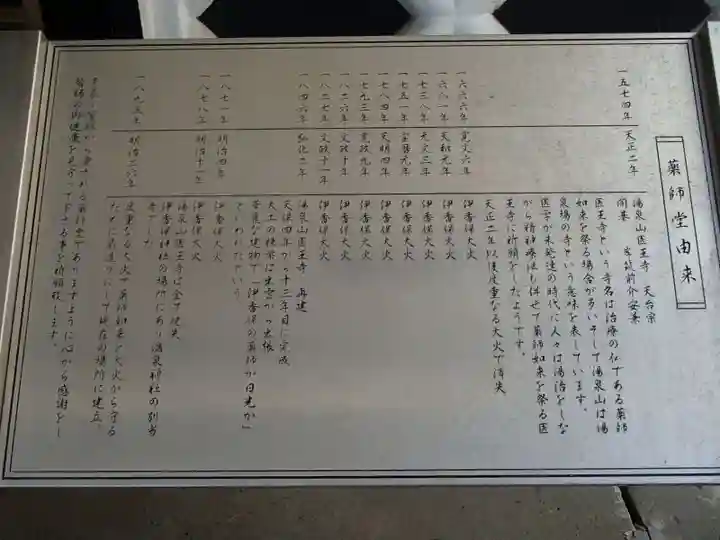 薬師堂由来
一五七四年 天正二年 湯泉山医王寺 天台宗
開基
医王寺という寺名は治療の仏である薬師
如来を祭る場合が多いそして湯泉山は湯
泉場の寺という意味を表しています。
医学が未発達の時代に人々は湯治をしな
がら精神療法も併せて薬師如来を祭る医
王寺に祈願をしたようです。
天正二年以後度重なる大火で消失
一六六六年 寛文六年 伊香保大火
一六八一年 天和元年 伊香保大火
一七三八年 元文三年 伊香保大火
一七五一年 宝暦元年 伊香保大火
一七八四年 天明四年 伊香保大火
一七九三年 寛政九年 伊香保大火
一八二六年 文政十年 伊香保大火
一八二七年 文政十一年 伊香保大火
一八四六年 弘化二年 湯泉山医王寺 再建
天保四年から十三年目に完成
大工の棟梁は出雲から出張
立派な建物で「伊香保の薬師か日光か」
といわれたという
一八七一年 明治四年 伊香保大火
一八七八年 明治十一年 伊香保大火
湯泉山医王寺は全て焼失
伊香保神社の場所にあり温泉神社の別当
寺でした
明治二六年 度重なる大火で薬師如来を大火から守る
ために石造りにして現在の場所に建立。
皆様の御健康を見守って下さる事を祈願致します。